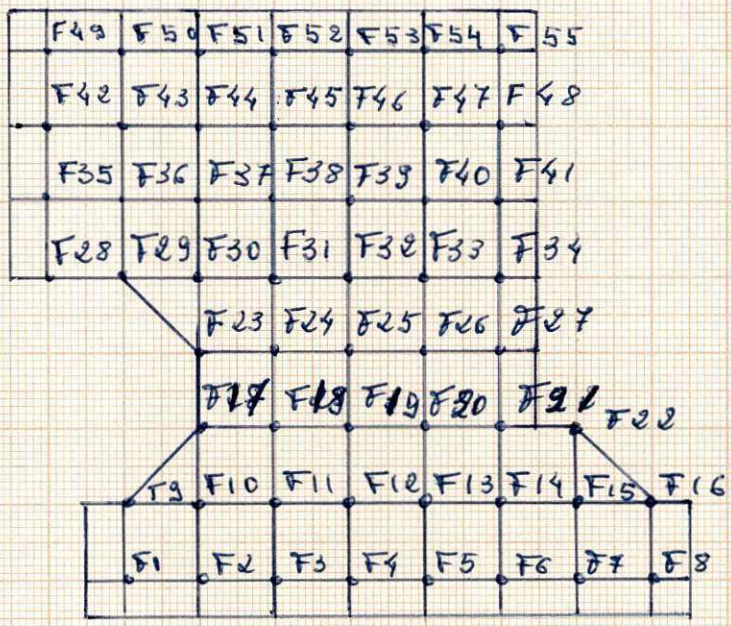 F49 F50 F51 F52 F53 F54 F55
F42 F43 F44 F45 F46 F47 F48
F35 F36 F37 F38 F39 F40 F41
F28 F29 F30 F31 F32 F33 F34
F23 F24 F25 F26 F27
F17 F18 F19 F20 F21
F22
F9 F10 F11 F12 F13 F14 F15 F16
F1 F2 F3 F4 F5 F6 F7 F8